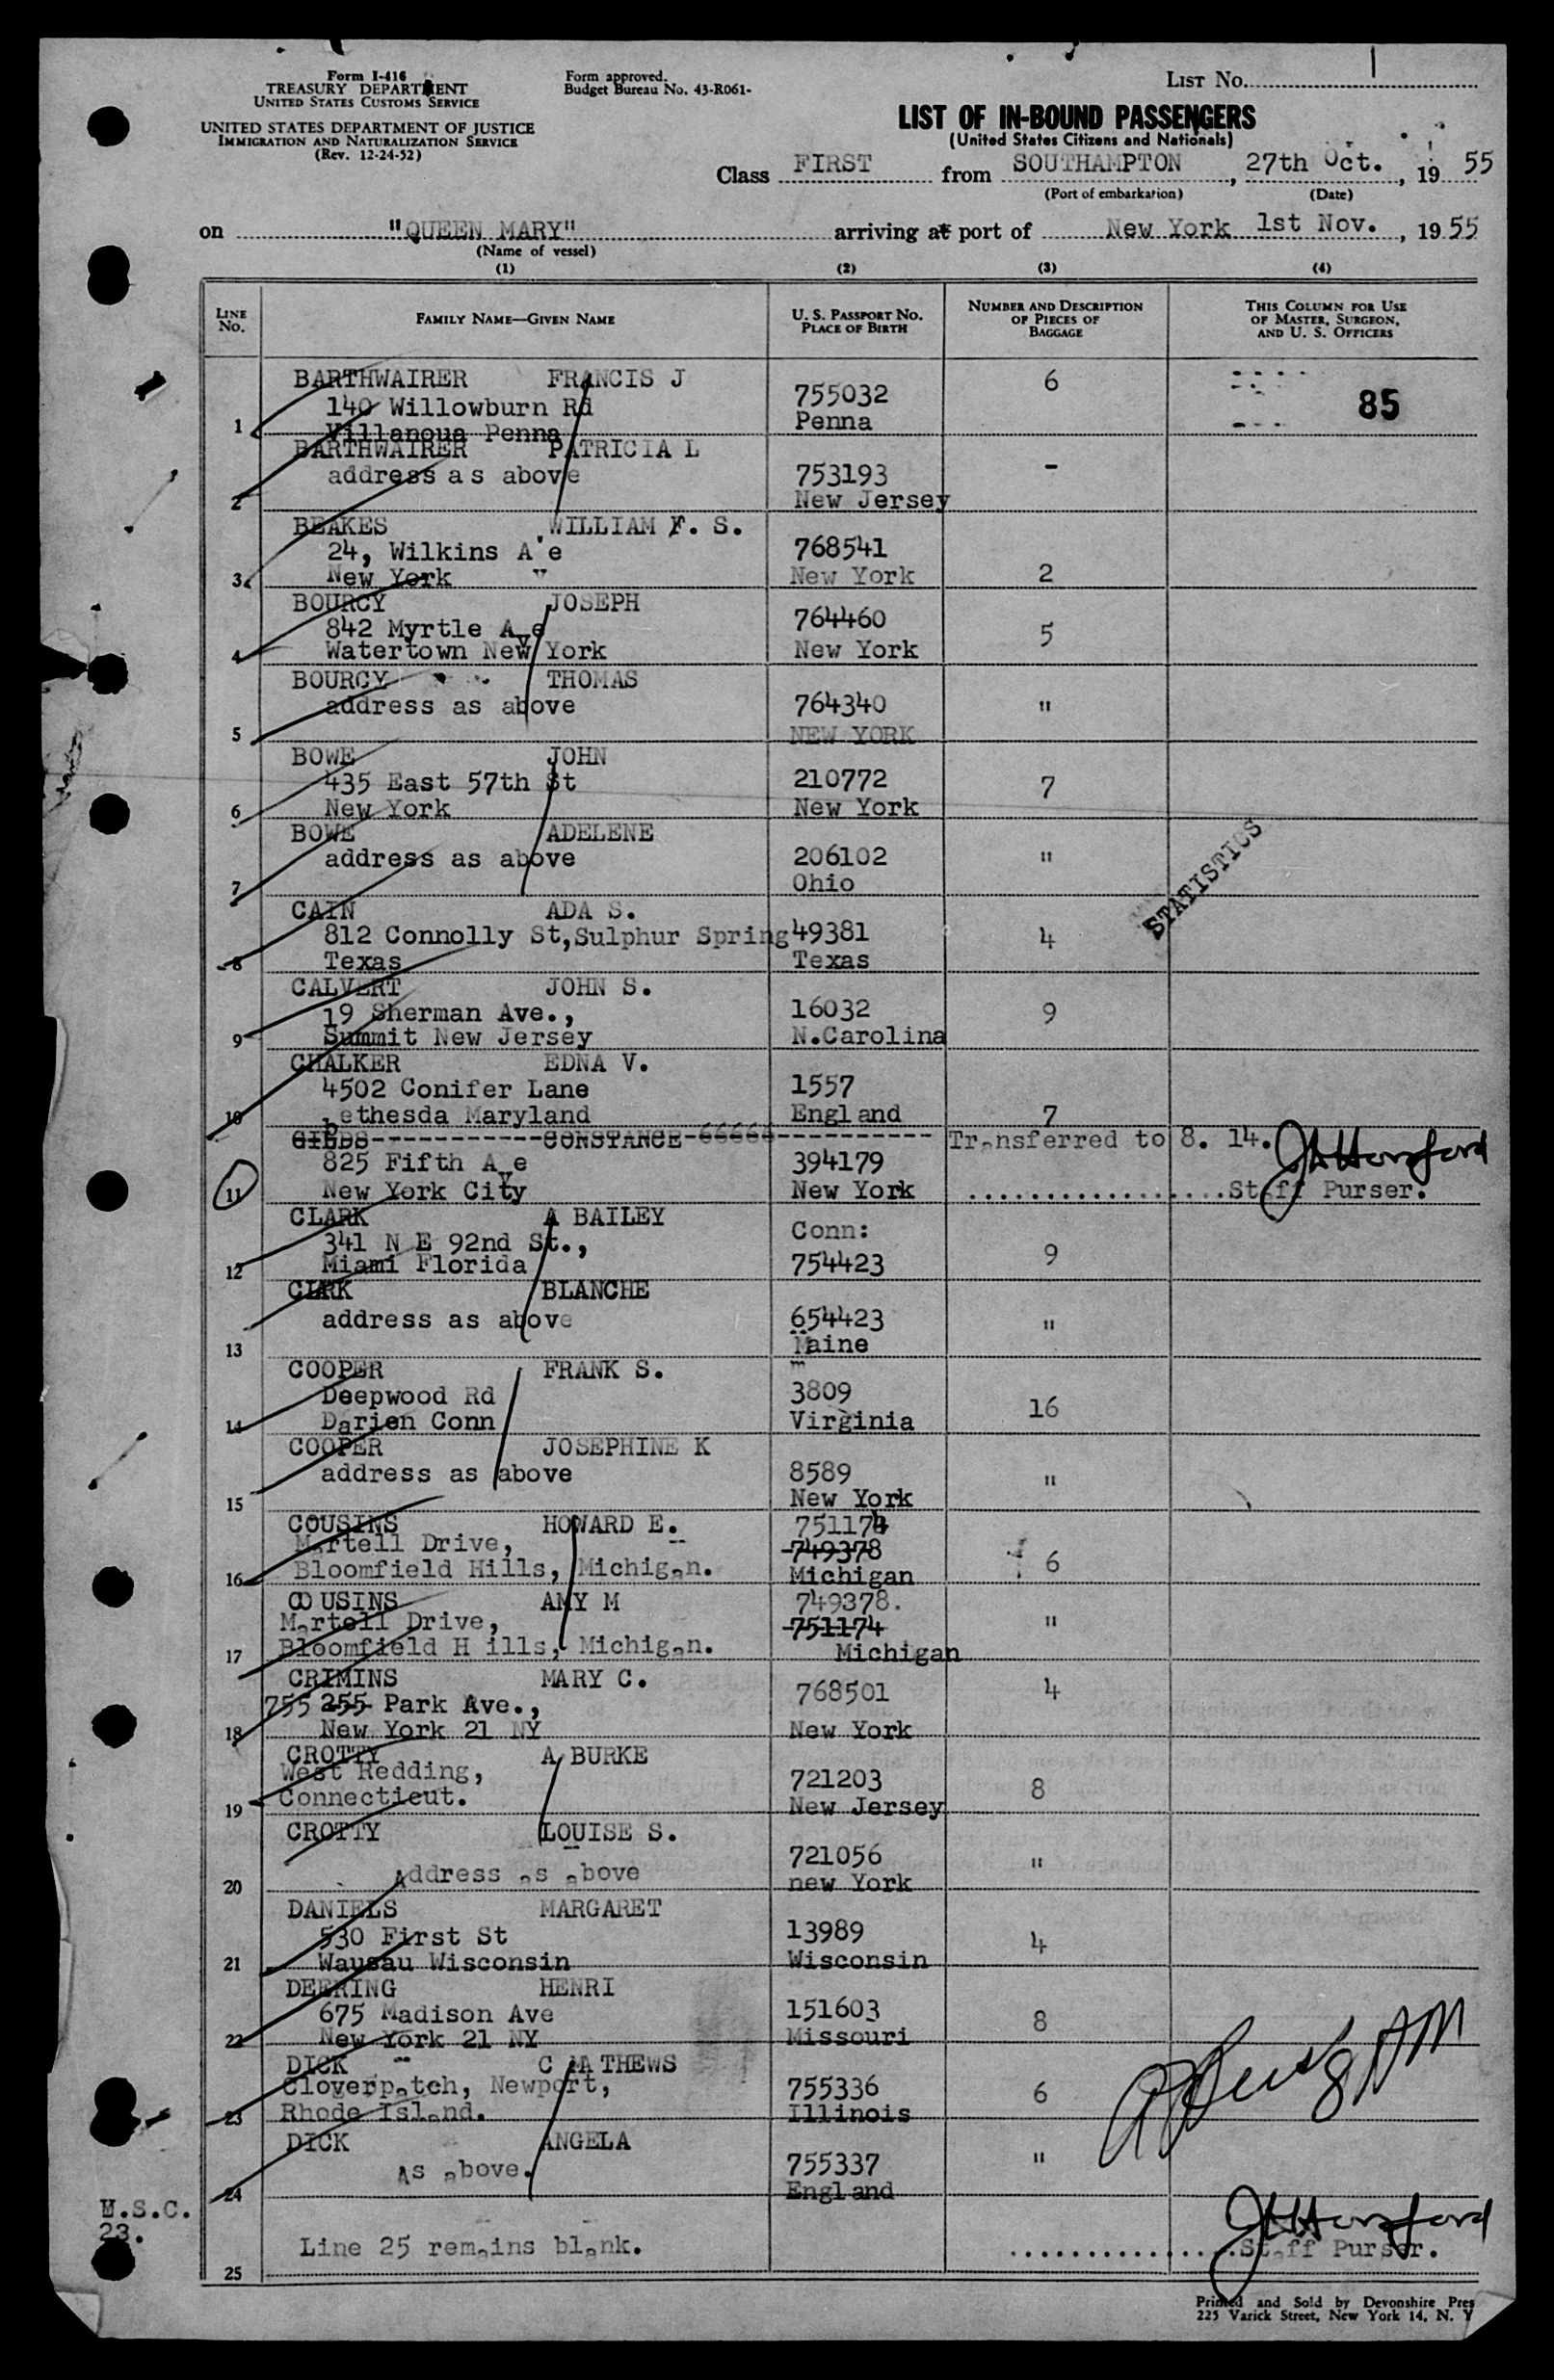 Form I-416
TREASURY DEPARTMENT
UNITED STATES CUSTOMS SERVICE
UNITED STATES DEPARTMENT OF JUSTICE
IMMIGRATION AND NATURALIZATION SERVICE
(Rev. 12-24-52)
Form approved.
Budget Bureau No. 43-R061-
LIST No. 1
LIST OF IN-BOUND PASSENGERS
(United States Citizens and Nationals)
Class FIRST from SOUTHAMPTON, 27th Oct., 19 55
(Port of embarkation) (Date)
on "QUEEN MARY" arriving at port of New York 1st Nov., 19 55
(Name of vessel)
(1) (2) (3) (4)
LINE No. FAMILY NAME—GIVEN NAME U. S. PASSPORT No. PLACE OF BIRTH NUMBER AND DESCRIPTION OF PIECES OF BAGGAGE THIS COLUMN FOR USE OF MASTER, SURGEON, AND U. S. OFFICERS
BARTHWAIRER FRANCIS J 6
140 Willowburn Rd 755032 85
1 Villanoua Penna Penna
BARTHWAIRER PATRICIA L
address as above 753193 -
2 New Jersey
BEAKES WILLIAM F. S.
24, Wilkins Ave 768541
3 New York New York 2
BOURCY JOSEPH 764460
842 Myrtle Ave 5
4 Watertown New York New York
BOURCY THOMAS
address as above 764340 "
5 NEW YORK
BOWE JOHN
435 East 57th St 210772 7
6 New York New York
BOWE ADELENE
address as above 206102 "
7 Ohio
STATISTICS
CAIN ADA S.
812 Connolly St,Sulphur Spring 49381 4
8 Texas Texas
CALVERT JOHN S.
19 Sherman Ave., 16032 9
9 Summit New Jersey N.Carolina
CHALKER EDNA V.
4502 Conifer Lane 1557
10 bethesda Maryland England 7
GIBBS-----------CONSTANCE-66664---------- Transferred to 8. 14.
825 Fifth Ave 394179
11 New York City New York ..................Staff Purser.
CLARK A BAILEY Conn:
341 N E 92nd St., 9
12 Miami Florida 754423
CLARK BLANCHE
address as above 654423 "
13 maine
COOPER FRANK S.
Deepwood Rd 3809 16
14 Darien Conn Virginia
COOPER JOSEPHINE K
address as above 8589 "
15 New York
COUSINS HOWARD E. 751174
Martell Drive, 749378 6
16 Bloomfield Hills, Michigan. Michigan
COUSINS AMY M 749378.
Martell Drive, 751174 "
17 Bloomfield H ills, Michigan. Michigan
CRIMINS MARY C. 4
755 255 Park Ave., 768501
18 New York 21 NY New York
CROTTY A BURKE
West Redding, 721203 8
19 Connecticut. New Jersey
CROTTY LOUISE S.
Address as above 721056 "
20 new York
DANIELS MARGARET
530 First St 13989 4
21 Wausau Wisconsin Wisconsin
DEERING HENRI
675 Madison Ave 151603 8
22 New York 21 NY Missouri
DICK C MATHEWS
Cloverpatch, Newport, 755336 6
23 Rhode Island. Illinois
DICK ANGELA
As above. 755337 "
24 England
U.S.C.
23.
Line 25 remains blank. ................Staff Purser.
25
Printed and Sold by Devonshire Pres
225 Varick Street, New York 14, N. Y